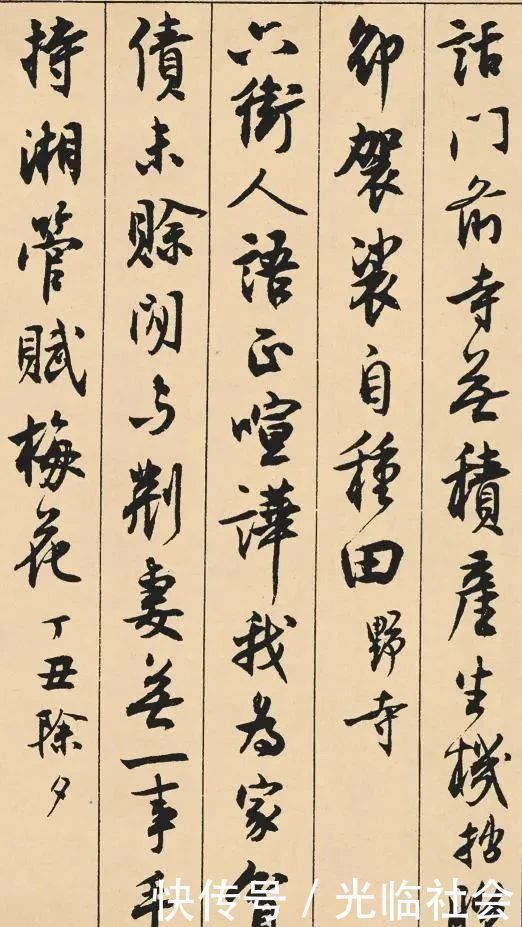 話门前寺無積產生機
卸袈裟自種田 野寺
六街人語正喧譁我為家貧
債未賒閒与荆妻無一事手
持湘管賦梅花 丁丑除夕
快传号 / 光临社会